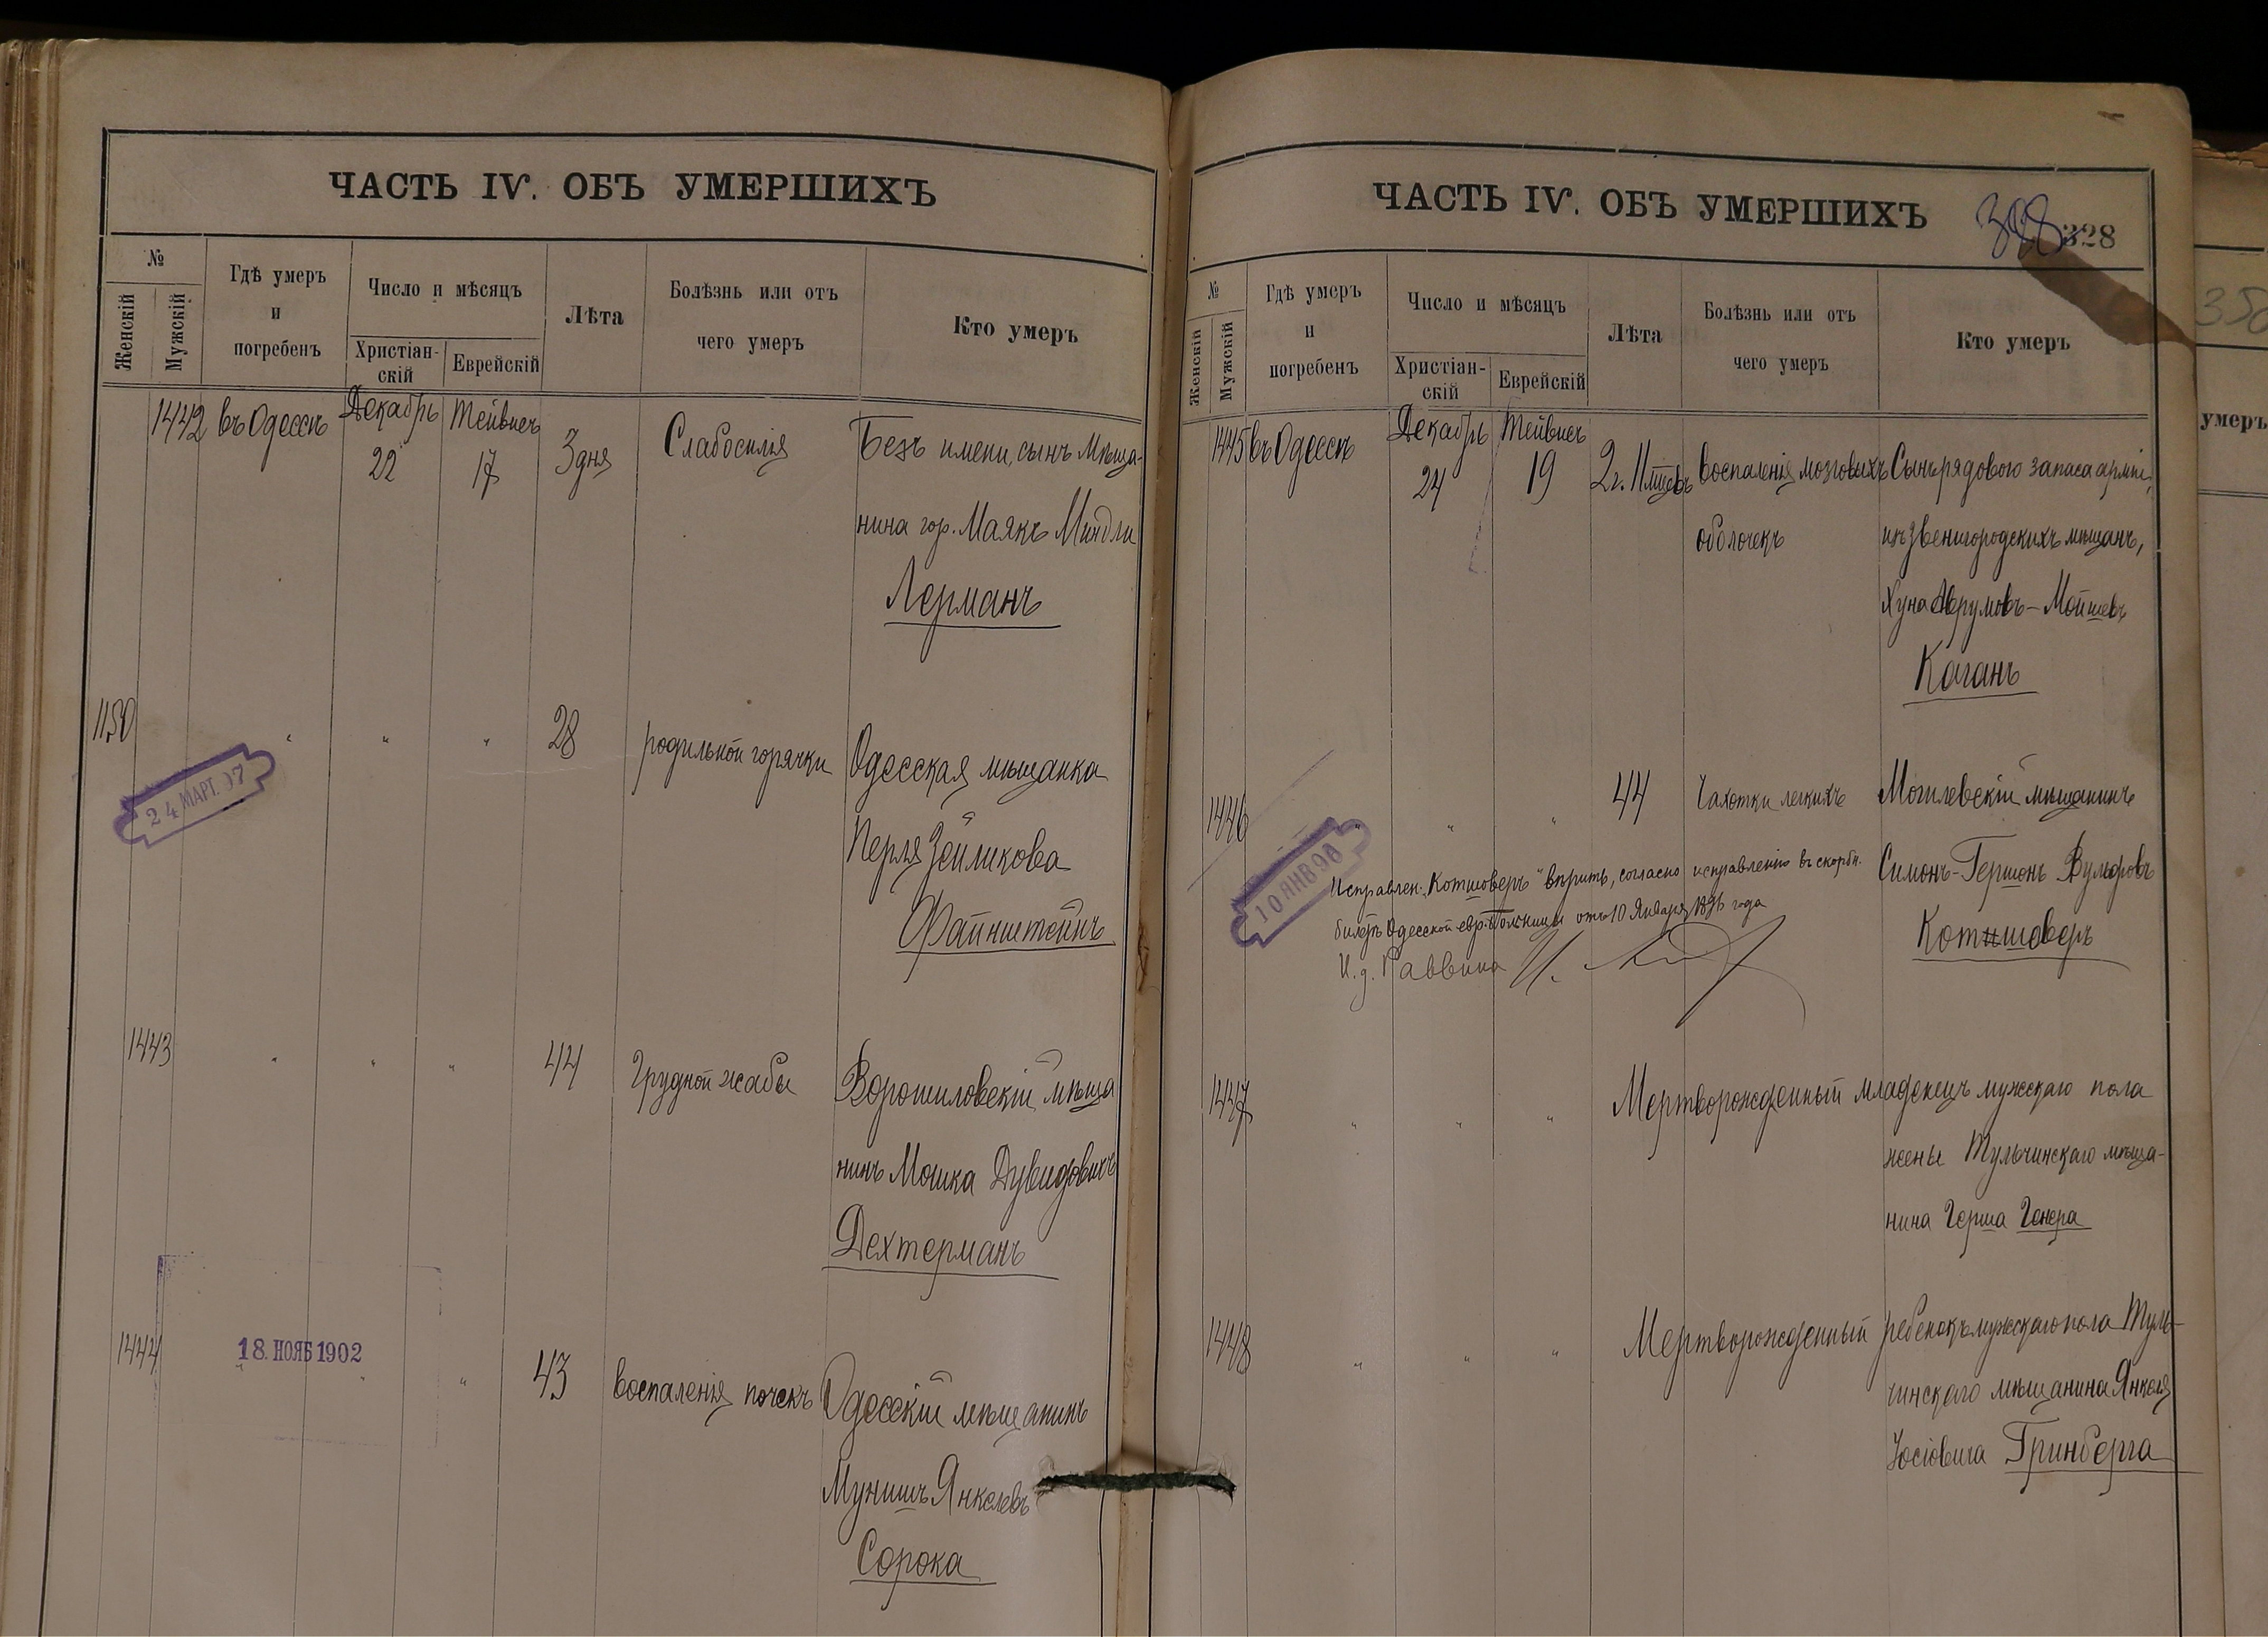 ЧАСТЬ IV. ОБЪ УМЕРШИХЪ
№
Женскій
Мужскій
Гдѣ умеръ
и
погребенъ
Число и мѣсяцъ
Христіан-
скій
Еврейскій
Лѣта
Болѣзнь или отъ
чего умеръ
Кто умеръ
1442 въ Одессѣ Декабрь Тейвисъ
22 17 3 дня Слабосилія Безъ имени, сынъ мѣща-
нина гор. Маякъ Миндли
Лерманъ
1150 " " " 28 родильной горячки Одесская мѣщанка
24 МАРТ. 07
Перля Зейликова
Файнштейнъ
1443 " " " 44 Грудной жабы Ворошиловскій мѣща
нинъ Мошка Дувидовичъ
Дехтерманъ
1444 " " " 43 воспаленія почекъ Одесскій мѣщанинъ
18. НОЯБ 1902
Мунишъ Янкелевъ
Сорока
ЧАСТЬ IV. ОБЪ УМЕРШИХЪ
328
№
Женскій
Мужскій
Гдѣ умеръ
и
погребенъ
Число и мѣсяцъ
Христіан-
скій
Еврейскій
Лѣта
Болѣзнь или отъ
чего умеръ
Кто умеръ
1445 въ Одессѣ Декабрь Тейвисъ
24 19 2 г. 11 мѣсевъ воспаленія мозговыхъ Сынъ рядового запаса арміи,
оболочекъ изъ Звенигородскихъ мѣщанъ,
Хуна Аврумовъ-Мойшевъ
Каганъ
1446 " " " 44 Чахотки легкихъ Могилевскій мѣщанинъ
10 ЯНВ 96
Симонъ-Гершонъ Вульфовъ
Котшоверъ
Исправлен: "Котшоверъ" вѣрить, согласно исправленію въ скорбн.
билетѣ Одесской евр. больницы отъ 10 Января 1896 года
И. д. Раввина
1447 " " " Мертворожденный младенецъ мужскаго пола
жены Тульчинскаго мѣща-
нина Герша Генера
1448 " " " Мертворожденный ребенокъ мужскаго пола Туль-
чинскаго мѣщанина Янкеля
Іосіовича Гринберга
350
умеръ